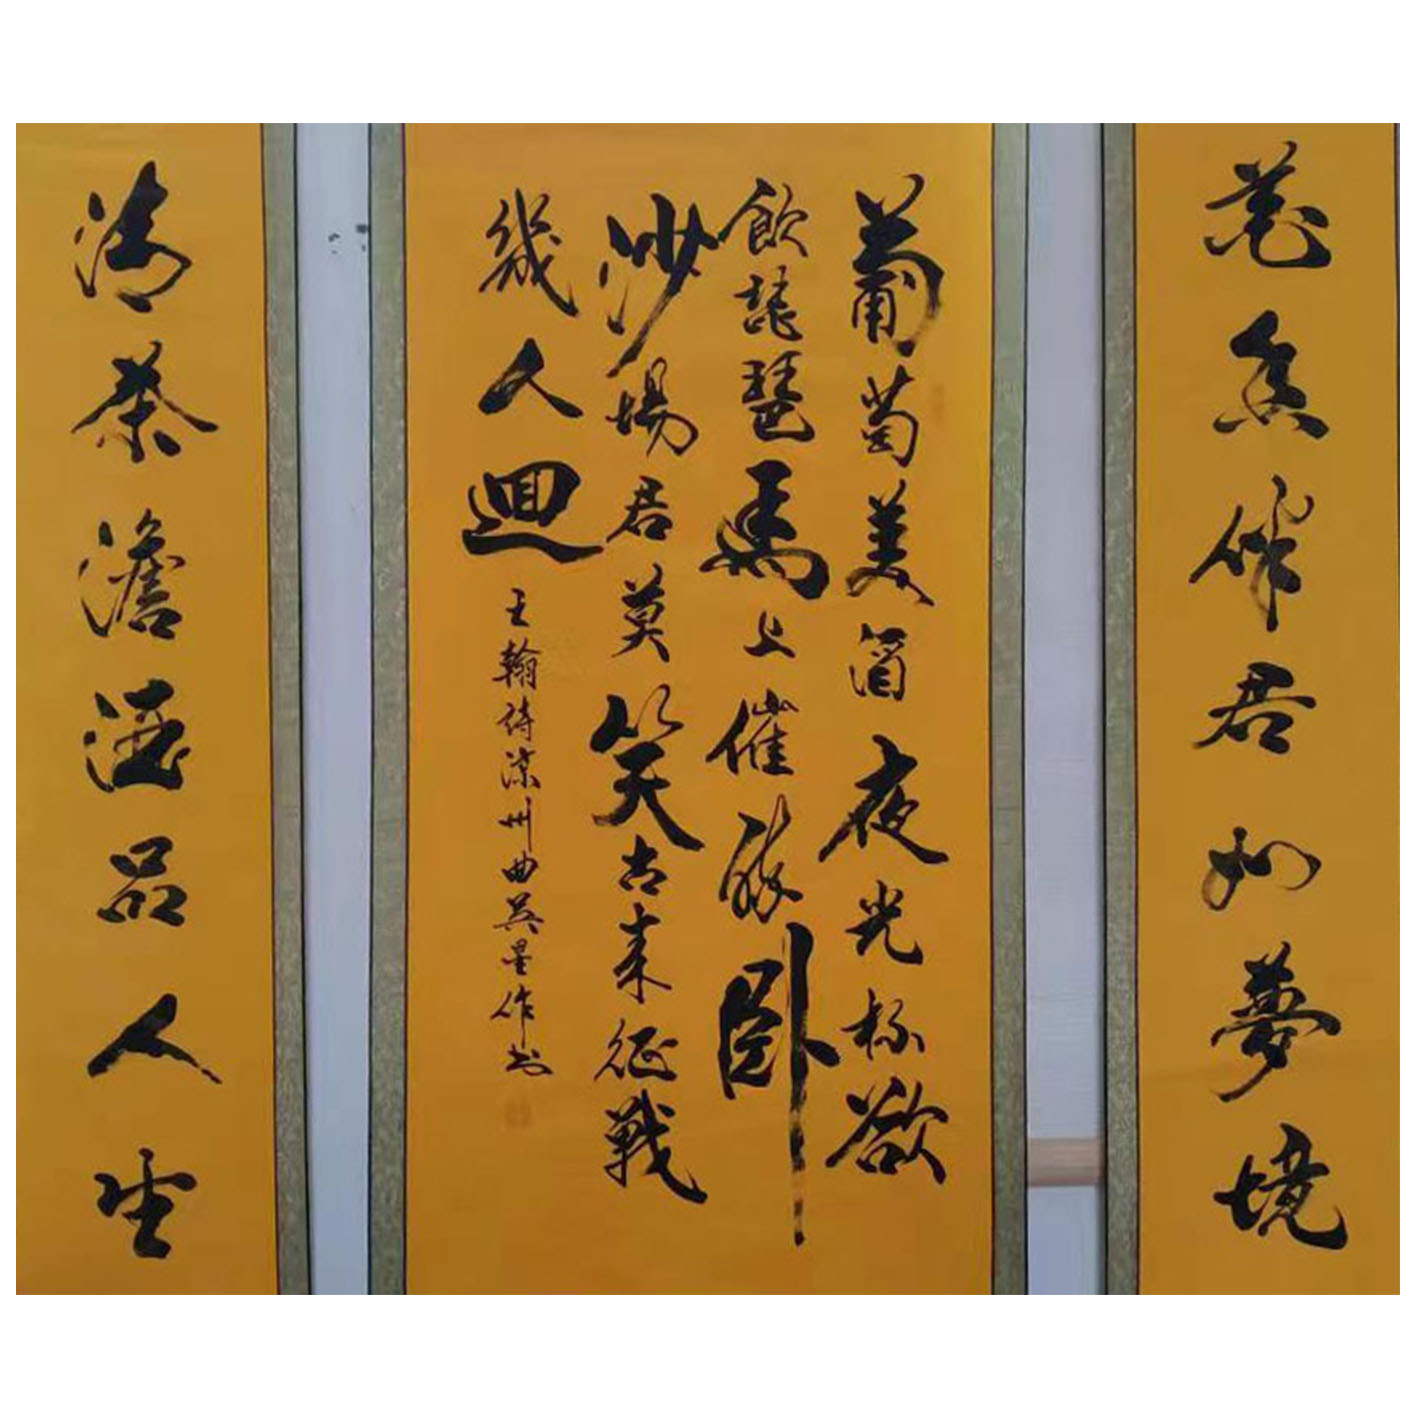 花香伴君如夢境
葡萄美酒夜光杯欲
飲琵琶馬上催醉臥
沙場君莫笑古来征戰
幾人迴
王翰詩涼州曲吳星作书
清茶澹酒品人生